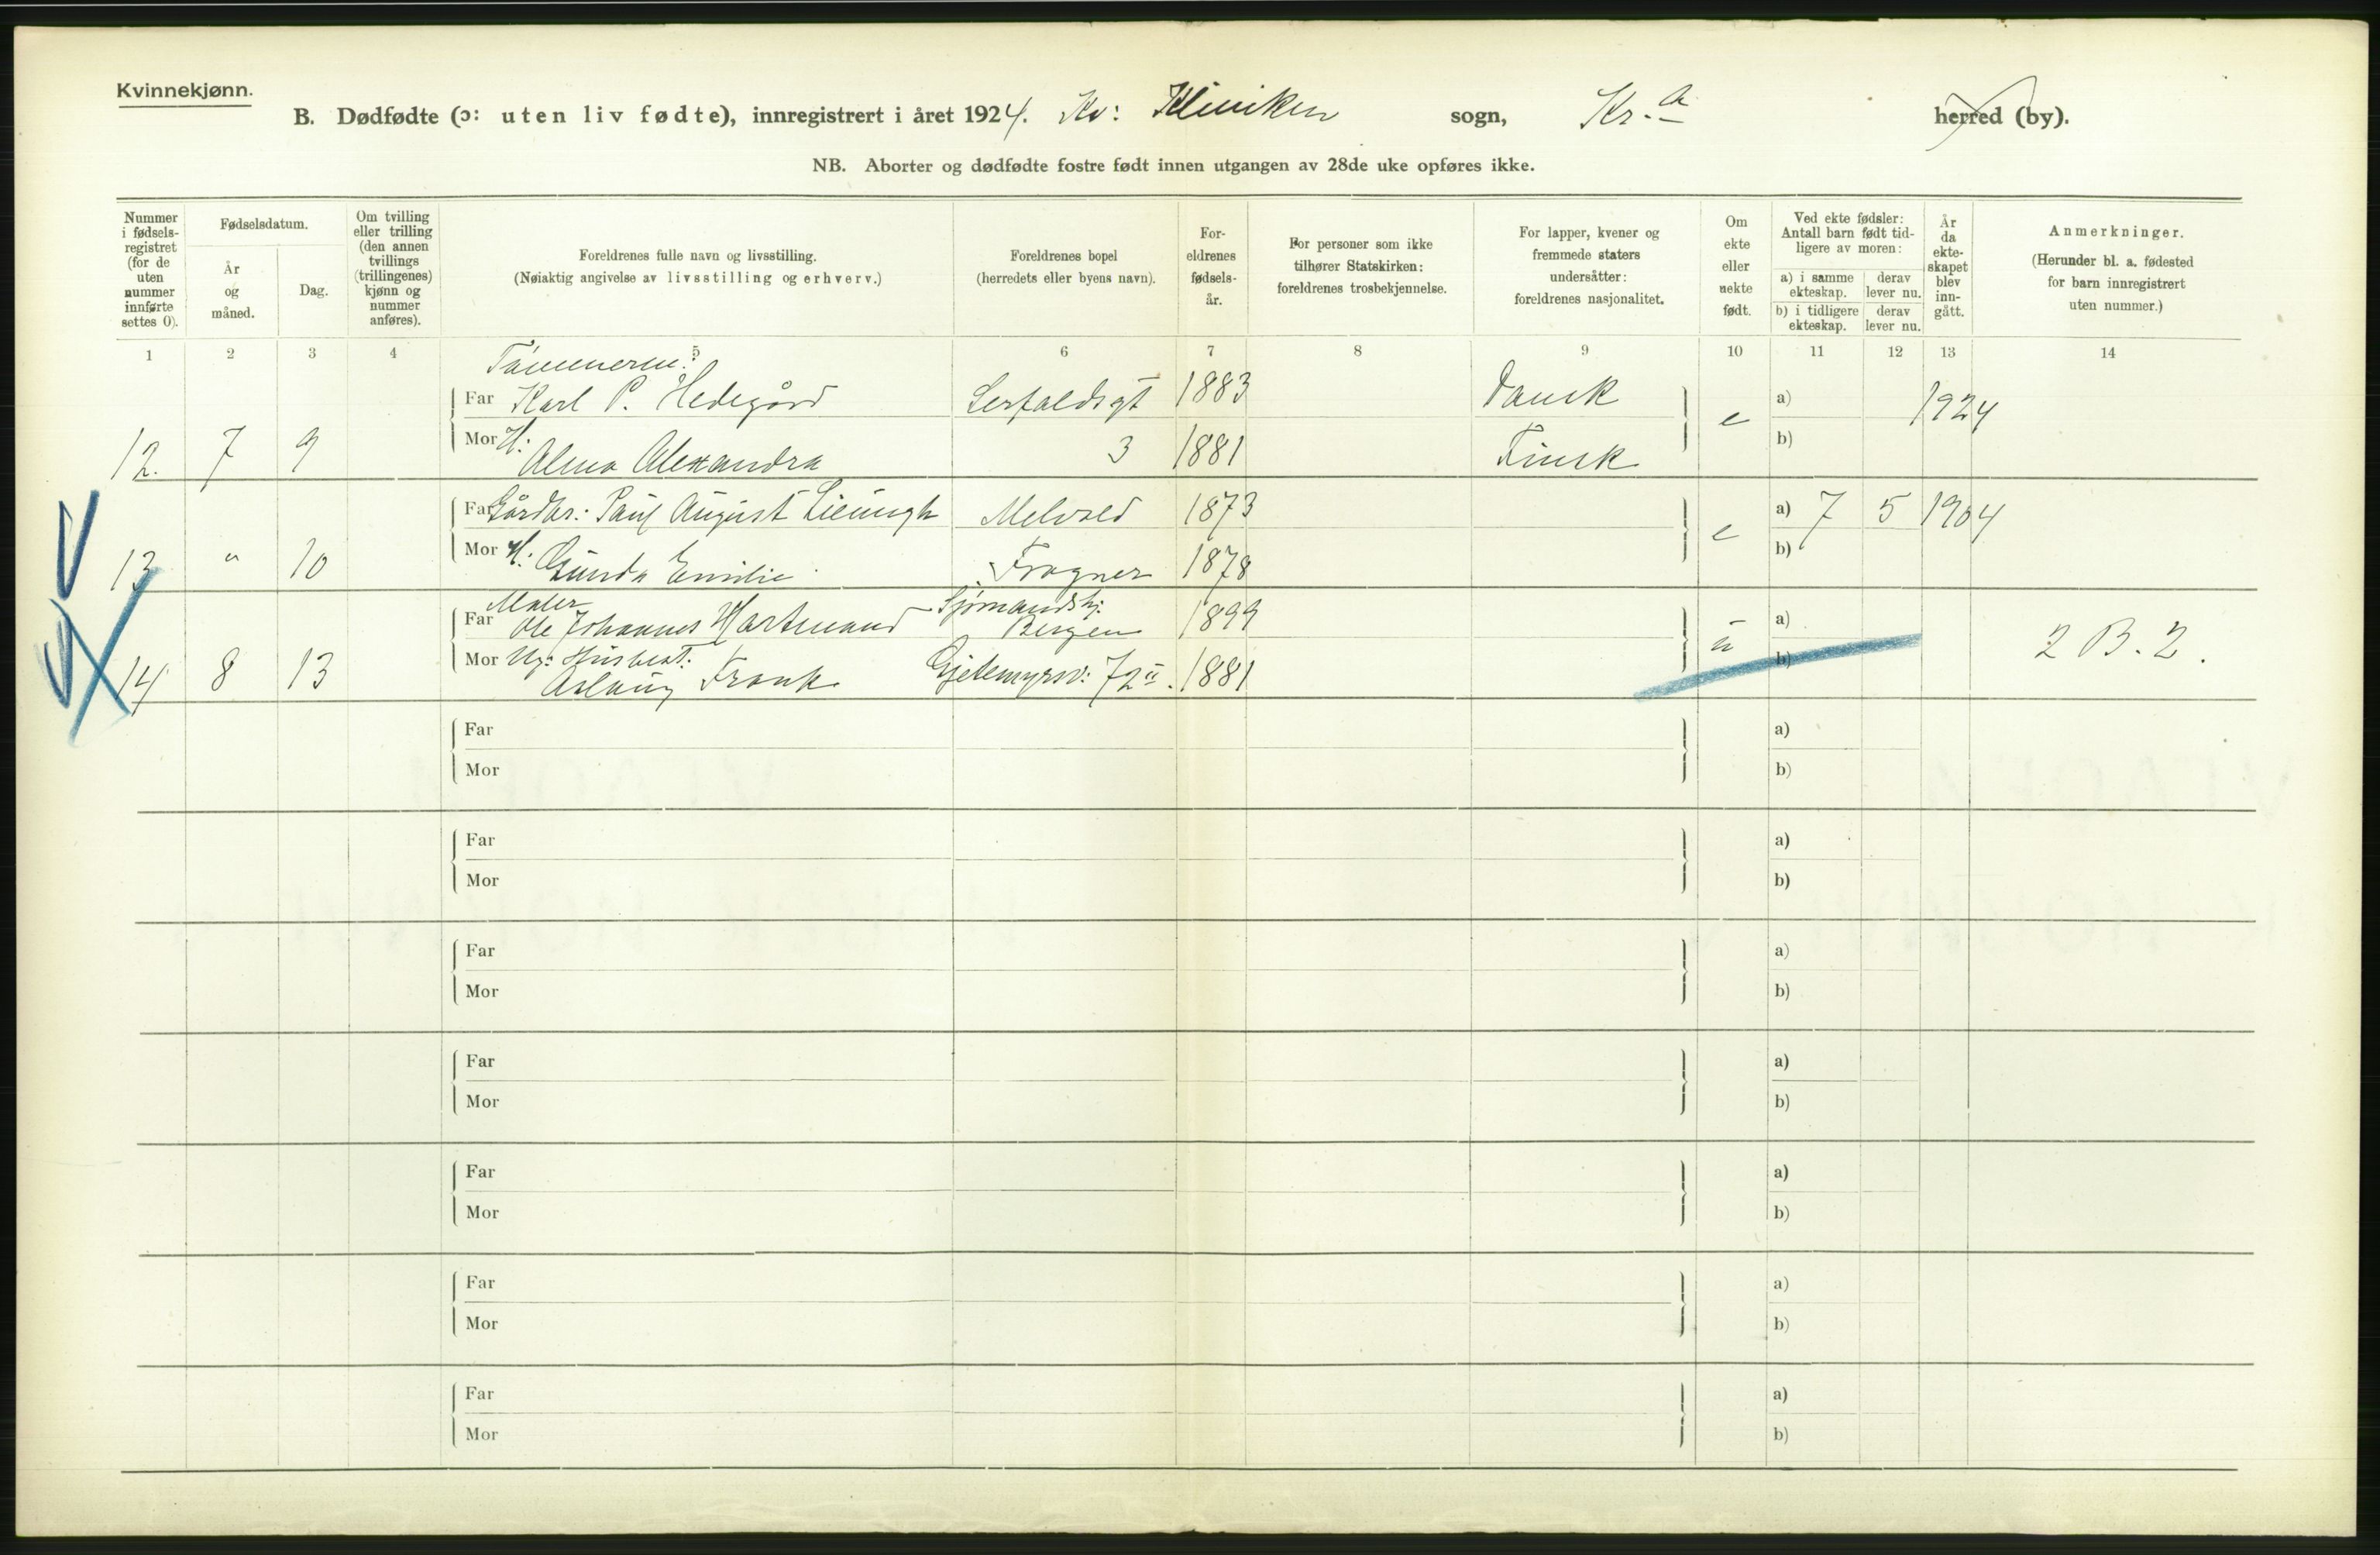 Kvinnekjønn.
B. Dødfødte (ɔ: uten liv fødte), innregistrert i året 1924. Kv: Kliniken sogn, Kr.a herred (by).
NB. Aborter og dødfødte fostre født innen utgangen av 28de uke opføres ikke.
Nummer i fødsels-registret (for de uten nummer innførte settes 0).
Fødselsdatum.
År og måned.
Dag.
Om tvilling eller trilling (den annen tvillings (trillingenes) kjønn og nummer anføres).
Foreldrenes fulle navn og livsstilling.
(Nøiaktig angivelse av livsstilling og erhverv.)
Foreldrenes bopel
(herredets eller byens navn).
For-eldrenes fødsels-år.
For personer som ikke tilhører Statskirken: foreldrenes trosbekjennelse.
For lapper, kvener og fremmede staters undersåtter: foreldrenes nasjonalitet.
Om ekte eller uekte født.
Ved ekte fødsler: Antall barn født tid-ligere av moren:
a) i samme ekteskap.
derav lever nu.
b) i tidligere ekteskap.
derav lever nu.
År da ekte-skapet blev inn-gått.
Anmerkninger.
(Herunder bl. a. fødested for barn innregistrert uten nummer.)
1 2 3 4 5 6 7 8 9 10 11 12 13 14
Tømmerm:
Far Karl P. Hedegård 1883 Dansk a) 1924
12. 7 9 Mor H: Alma Alexandra 3 1881 Finsk e b)
Far Gårdbr: Paul August 1873 a) 7 5 1904
13 " 10 Mor H: Gunda Emilie Frogner 1878 e b)
Maler Sjømandshj:
Far Ole Johannes Hartmand Bergen 1899 a)
14 8 13 Mor Ug: Husbest: Aslaug Frank Gjetemyrsv: 72 II. 1881 u b) 2 B. 2.
Far a)
Mor b)
Far a)
Mor b)
Far a)
Mor b)
Far a)
Mor b)
Far a)
Mor b)
Far a)
Mor b)
Far a)
Mor b)